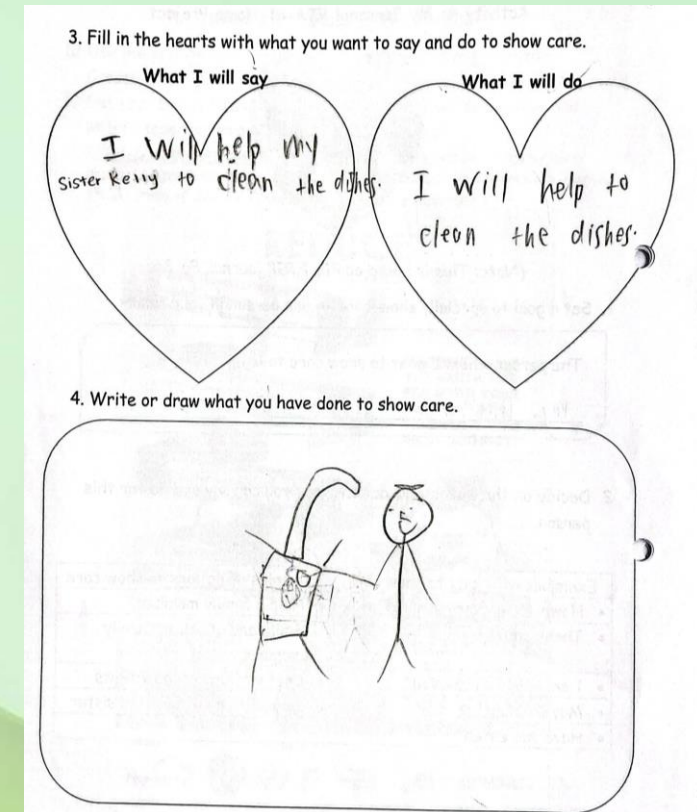 3. Fill in the hearts with what you want to say and do to show care.
What I will say
What I will do
I will help my
sister to clean the dishes.
I will help to
clean the dishes.
4. Write or draw what you have done to show care.